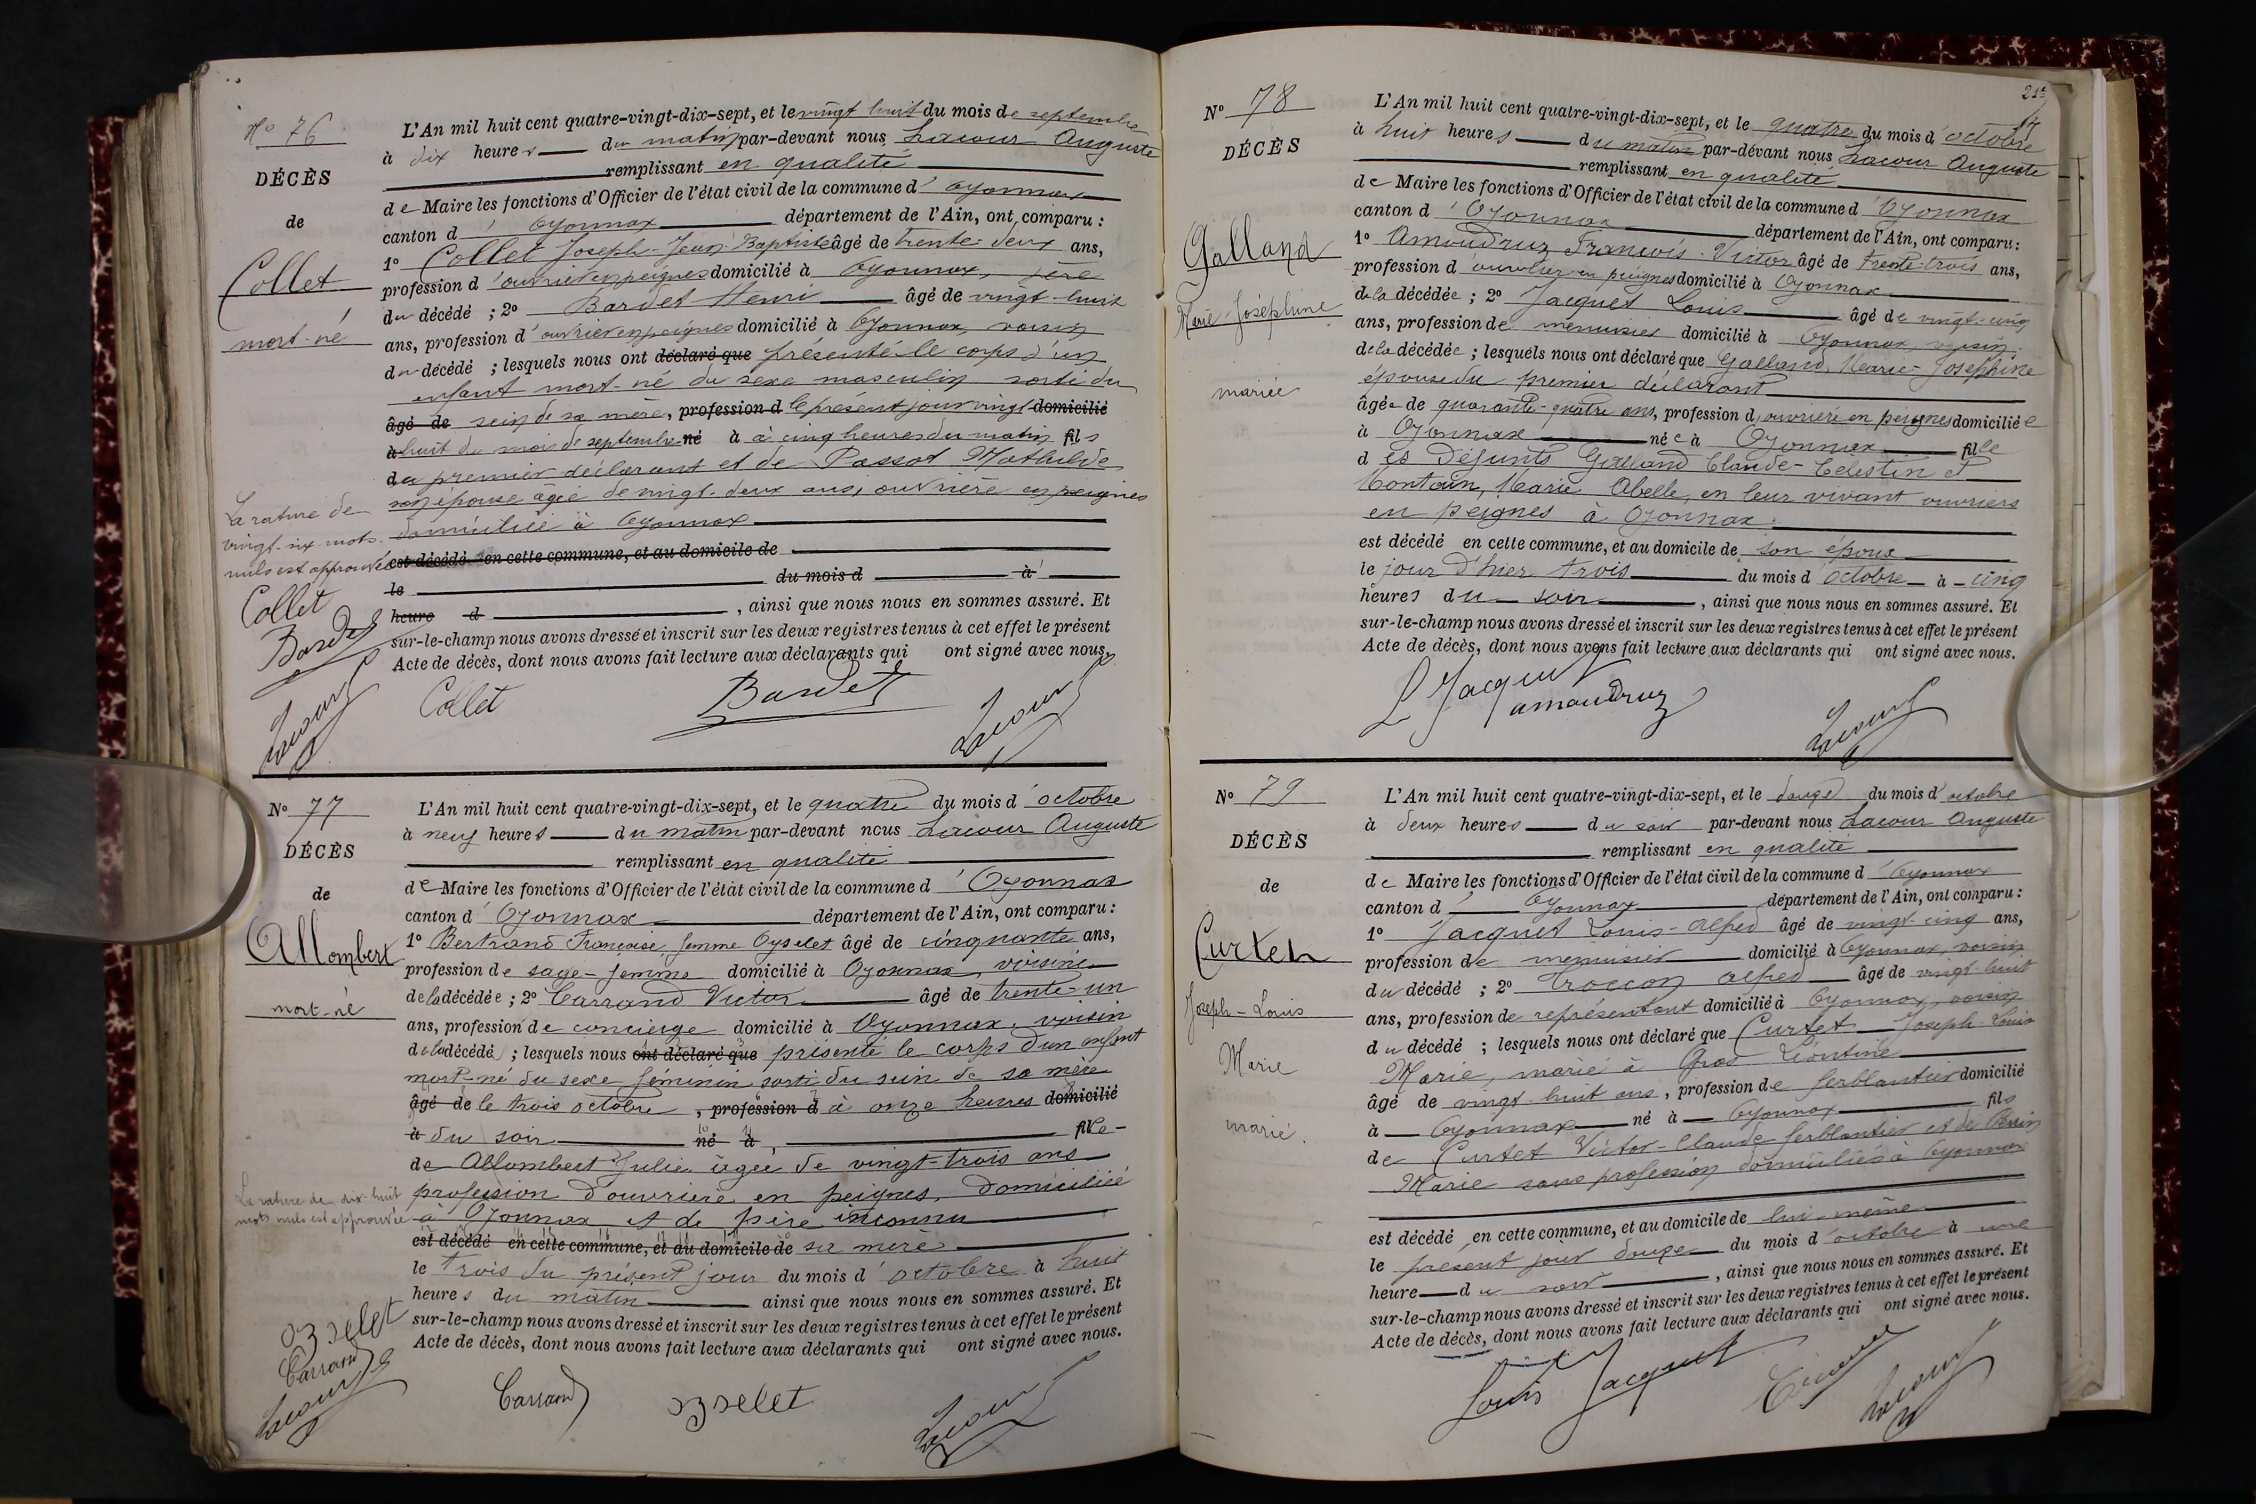 No 76
DÉCÈS
de
Collet
mort-né
L'An mil huit cent quatre-vingt-dix-sept, et le vingt huit du mois de septembre
à dix heures du matin par-devant nous Lacour Auguste
remplissant en qualité
de Maire les fonctions d'Officier de l'état civil de la commune d'Oyonnax
canton d'Oyonnax département de l'Ain, ont comparu :
1o Collet Joseph-Jean-Baptiste âgé de trente-deux ans,
profession d'ouvrier en peignes domicilié à Oyonnax, père
du décédé ; 2o Bardet Henri âgé de vingt-huit
ans, profession d'ouvrier en peignes domicilié à Oyonnax, voisin
du décédé ; lesquels nous ont déclaré que présenté le corps d'un
enfant mort-né du sexe masculin sorti du
âgé de sein de sa mère, profession d le présent jour vingt domicilié
à huit du mois de septembre né à à cinq heures du matin fils
du premier déclarant et de Passot Mathilde
son épouse âgée de vingt-deux ans, ouvrière en peignes
domiciliée à Oyonnax
est décédé en cette commune, et au domicile de
le du mois d à
heure d , ainsi que nous nous en sommes assuré. Et
sur-le-champ nous avons dressé et inscrit sur les deux registres tenus à cet effet le présent
Acte de décès, dont nous avons fait lecture aux déclarants qui ont signé avec nous.
La rature de
vingt-six mots
nuls est approuvée
Collet
Bardet
Lacour
Collet Bardet Lacour
No 77
DÉCÈS
de
Allombert
mort-né
L'An mil huit cent quatre-vingt-dix-sept, et le quatre du mois d'octobre
à neuf heures du matin par-devant nous Lacour Auguste
remplissant en qualité
de Maire les fonctions d'Officier de l'état civil de la commune d'Oyonnax
canton d'Oyonnax département de l'Ain, ont comparu :
1o Bertrand Françoise femme Oyselet âgé de cinquante ans,
profession de sage-femme domicilié à Oyonnax, voisine
de la décédée ; 2o Carrand Victor âgé de trente-un
ans, profession de concierge domicilié à Oyonnax, voisin
de la décédé ; lesquels nous ont déclaré que présenté le corps d'un enfant
mort-né du sexe féminin sorti du sein de sa mère
âgé de le trois octobre , profession d à onze heures domicilié
à du soir né à , fille
de Allombert Julie âgée de vingt-trois ans
profession d'ouvrière en peignes, domiciliée
à Oyonnax et de père inconnu
est décédé en cette commune, et au domicile de sa mère
le trois du présent jour du mois d'octobre à huit
heures du matin ainsi que nous nous en sommes assuré. Et
sur-le-champ nous avons dressé et inscrit sur les deux registres tenus à cet effet le présent
Acte de décès, dont nous avons fait lecture aux déclarants qui ont signé avec nous.
La rature de dix-huit
mots nuls est approuvée
oyselet
Carrand
Lacour
Carrand oyselet Lacour
No 78
DÉCÈS
Galland
Marie-Joséphine
mariée
L'An mil huit cent quatre-vingt-dix-sept, et le quatre du mois d'octobre
à huit heures du matin par-devant nous Lacour Auguste
remplissant en qualité
de Maire les fonctions d'Officier de l'état civil de la commune d'Oyonnax
canton d'Oyonnax département de l'Ain, ont comparu :
1o Amoudruz François-Victor âgé de trente-trois ans,
profession d'ouvrier en peignes domicilié à Oyonnax
de la décédée ; 2o Jacquet Louis âgé de vingt-cinq
ans, profession de menuisier domicilié à Oyonnax, voisin
de la décédée ; lesquels nous ont déclaré que Galland, Marie-Joséphine
épouse du premier déclarant
âgée de quarante-quatre ans, profession d'ouvrière en peignes domiciliée
à Oyonnax née à Oyonnax fille
des défunts Galland Claude-Célestin et
Montain, Marie Abelle, en leur vivant ouvriers
en peignes à Oyonnax
est décédé en cette commune, et au domicile de son époux
le jour d'hier trois du mois d'octobre à cinq
heures du soir , ainsi que nous nous en sommes assuré. Et
sur-le-champ nous avons dressé et inscrit sur les deux registres tenus à cet effet le présent
Acte de décès, dont nous avons fait lecture aux déclarants qui ont signé avec nous.
L Jacquet
amoudruz
Lacour
No 79
DÉCÈS
de
Curtet
Joseph-Louis
Marie
marié.
L'An mil huit cent quatre-vingt-dix-sept, et le douze du mois d'octobre
à deux heures du soir par-devant nous Lacour Auguste
remplissant en qualité
de Maire les fonctions d'Officier de l'état civil de la commune d'Oyonnax
canton d'Oyonnax département de l'Ain, ont comparu :
1o Jacquet Louis-Alfred âgé de vingt-cinq ans,
profession de menuisier domicilié à Oyonnax, voisin
du décédé ; 2o Troccon Alfred âgé de vingt-huit
ans, profession de représentant domicilié à Oyonnax, voisin
du décédé ; lesquels nous ont déclaré que Curtet Joseph-Louis
Marie, marié à Gros Léontine
âgé de vingt-huit ans, profession de ferblantier domicilié
à Oyonnax né à Oyonnax fils
de Curtet Victor-Claude ferblantier et de Perrin
Marie sans profession domiciliés à Oyonnax
est décédé en cette commune, et au domicile de lui-même
le présent jour douze du mois d'octobre à une
heure du soir , ainsi que nous nous en sommes assuré. Et
sur-le-champ nous avons dressé et inscrit sur les deux registres tenus à cet effet le présent
Acte de décès, dont nous avons fait lecture aux déclarants qui ont signé avec nous.
Louis Jacquet Lacour